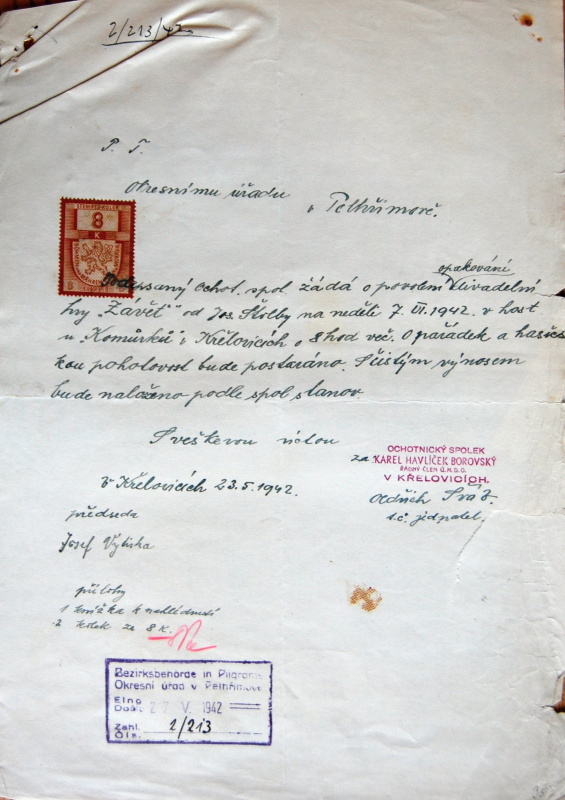 2/213/42
P. T.
Okresnímu úřadu
v Pelhřimově.
8
K
opakování
Podepsaný ochot. spol. žádá o povolení divadelní
hry "Závěť" od Jos. Štolby na neděli 7. VI. 1942 v host
u "Komůrků" v Křelovicích o 8 hod več. O pořádek a hasičs
kou pohotovost bude postaráno. S čistým výnosem
bude naloženo podle spol stanov.
S veškerou úctou
OCHOTNICKÝ SPOLEK
za KAREL HAVLÍČEK BOROVSKÝ
ŘÁDNÝ ČLEN Ú.M.D.O.
V KŘELOVICÍCH.
V Křelovicích 23.5.1942.
Oldřich
t.č. jednatel.
předseda
Josef
přílohy
1 knížka k nahlédnutí
2 kolek za 8 K.
Bezirksbehörde in Pilgrams
Okresní úřad v Pelhřimově
Eing
Došlo 2 V. 1942
Zahl.
Čís. 2/213